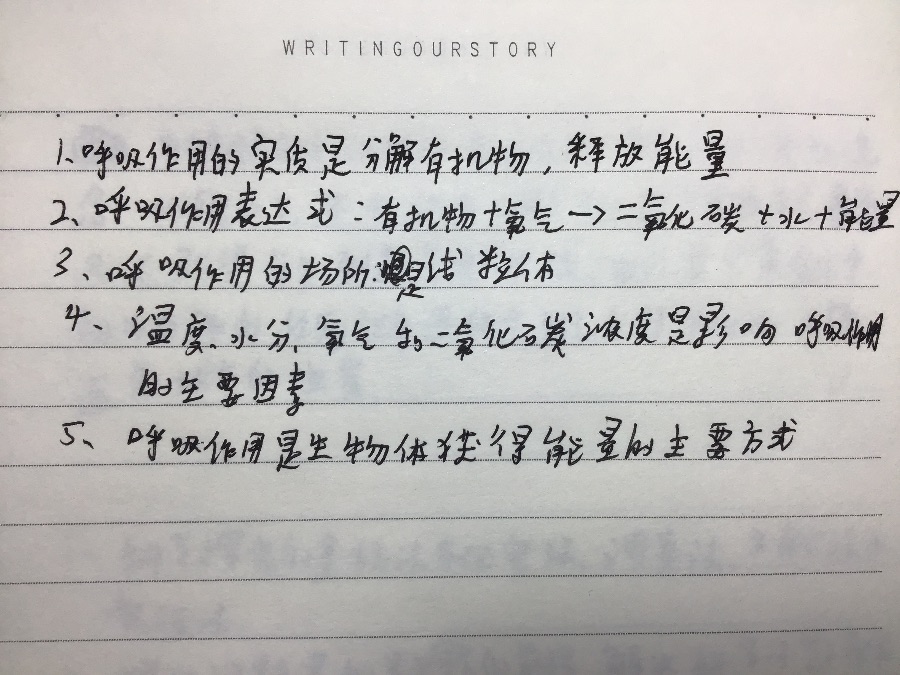 WRITINGOURSTORY
1、呼吸作用的实质是分解有机物，释放能量
2、呼吸作用表达式：有机物+氧气→二氧化碳+水+能量
3、呼吸作用的场所:是线粒体
4、温度、水分、氧气和二氧化碳浓度是影响呼吸作用
的主要因素
5、呼吸作用是生物体获得能量的主要方式